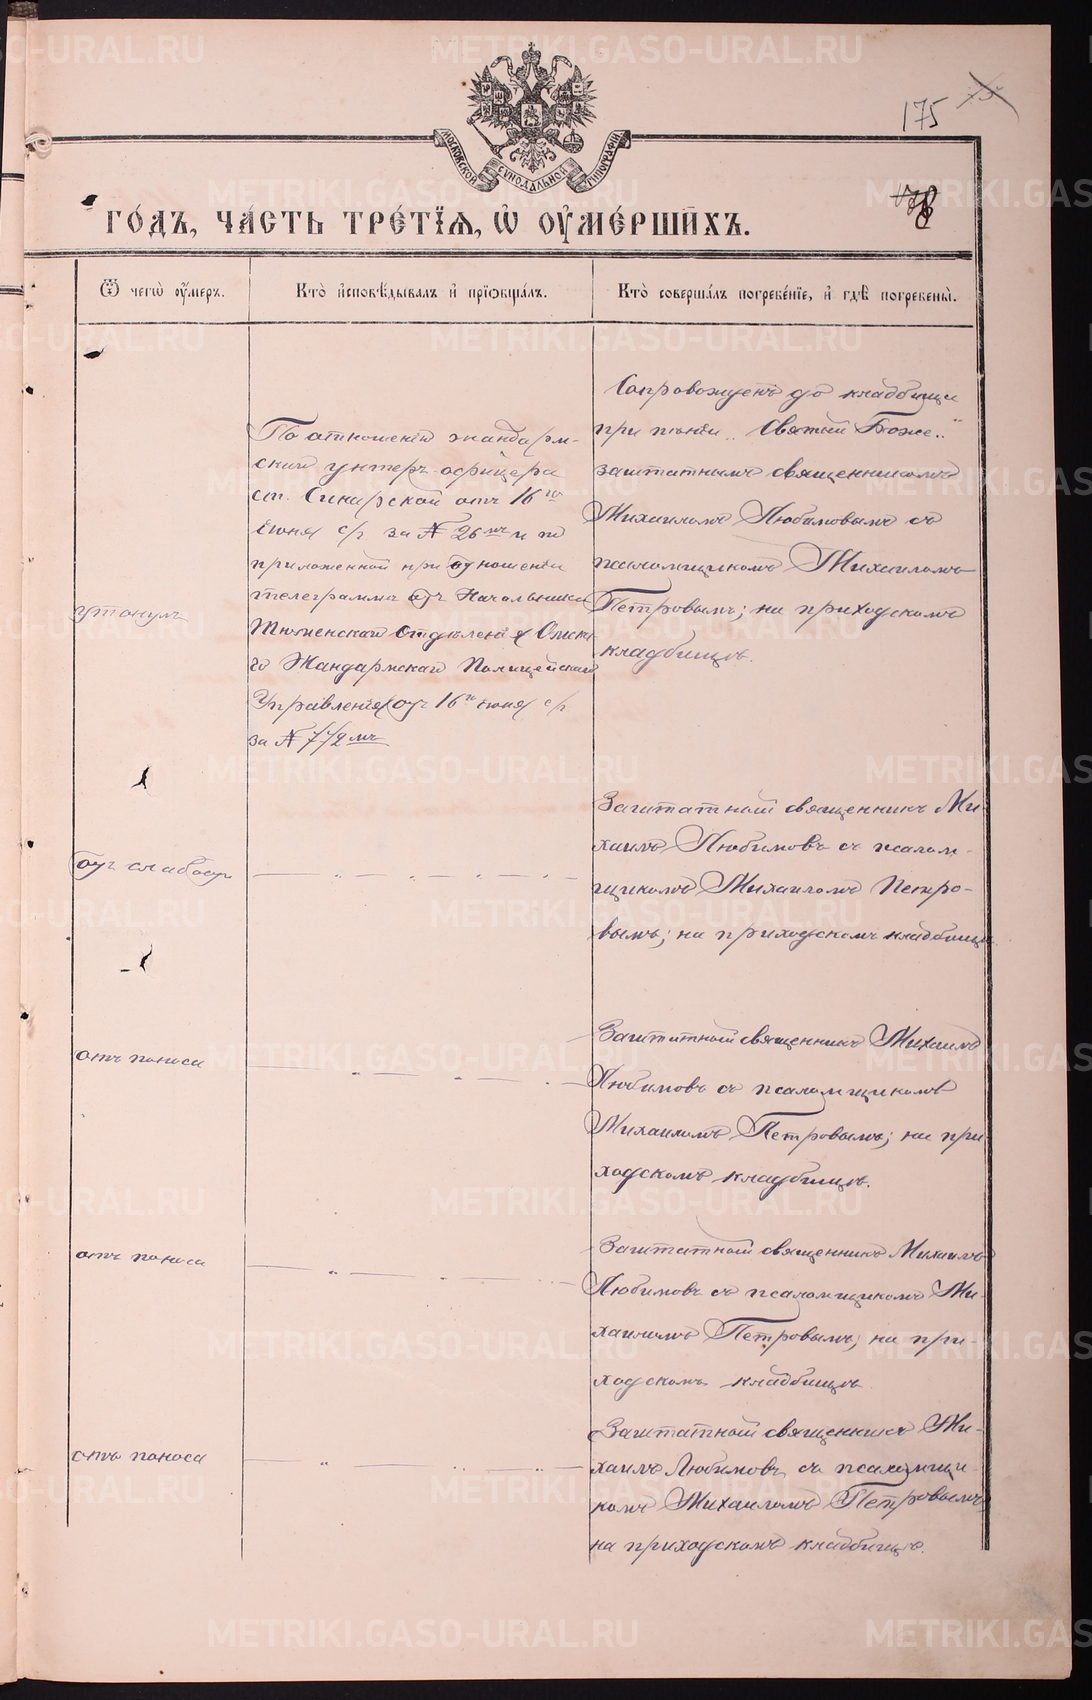 175
МОСКОВСКОЙ СѴНОДАЛЬНОЙ ТИПОГРАФІИ
ГО́ДЪ, ЧА́СТЬ ТРЕ́ТІѦ, Ѡ҆ ОУ҆МЕ́РШИХЪ.
Ѿ чегѡ̀ оу҆́меръ.
Кто̀ и҆сповѣ́дывалъ и҆ прїѡбща́лъ.
Кто̀ соверша́лъ погребе́нїе, и҆ гдѣ̀ погребены̀.
утонулъ
По отношенію жандарм-
скаго унтеръ-офицера
ст. Синарской отъ 16го
Іюня с/г за № 26мъ и по
приложенной при отношеніи
телеграммѣ отъ Начальника
Тюменскаго Отдѣленія Омска-
го Жандармскаго Полицейскаго
Управленія отъ 16го іюня с/г
за № 772мъ
Сопровожденъ до кладбища
при пѣніи „Святый Боже"
заштатнымъ священникомъ
Михаиломъ Любимовымъ съ
псаломщикомъ Михаиломъ
Петровымъ; на приходскомъ
кладбищѣ.
отъ слабости
Заштатный священникъ Ми-
хаилъ Любимовъ съ псалом-
щикомъ Михаиломъ Петро-
вымъ; на приходскомъ кладбищѣ
отъ поноса
Заштатный священникъ Михаилъ
Любимовъ съ псаломщикомъ
Михаиломъ Петровымъ; на при-
ходскомъ кладбищѣ.
отъ поноса
Заштатный священникъ Михаилъ
Любимовъ съ псаломщикомъ Ми-
хаиломъ Петровымъ; на при-
ходскомъ кладбищѣ
отъ поноса
Заштатный священникъ Ми-
хаилъ Любимовъ съ псаломщи-
комъ Михаиломъ Петровымъ
на приходскомъ кладбищѣ.
METRIKI.GASO-URAL.RU